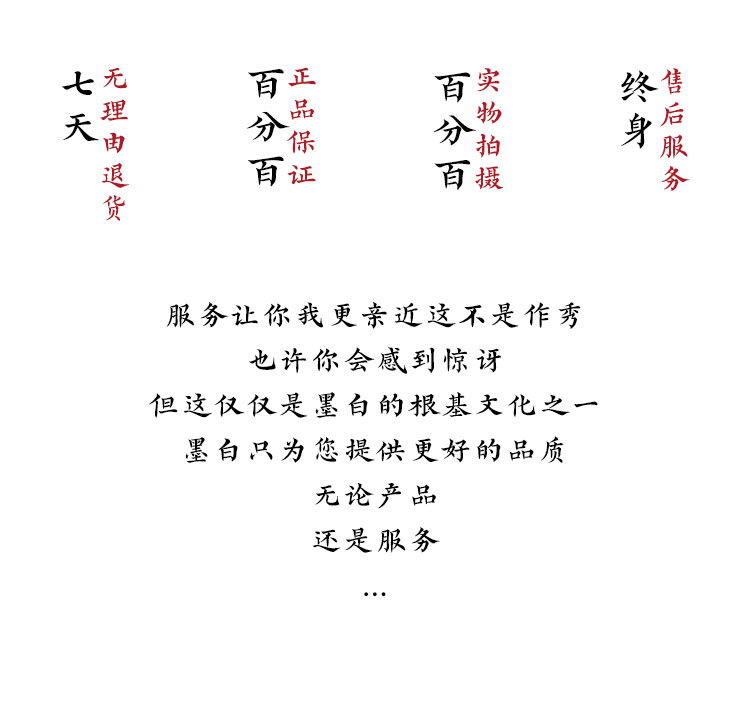 七天
无理由退货
百分百
正品保证
百分百
实物拍摄
终身
售后服务
服务让你我更亲近这不是作秀
也许你会感到惊讶
但这仅仅是墨白的根基文化之一
墨白只为您提供更好的品质
无论产品
还是服务
...